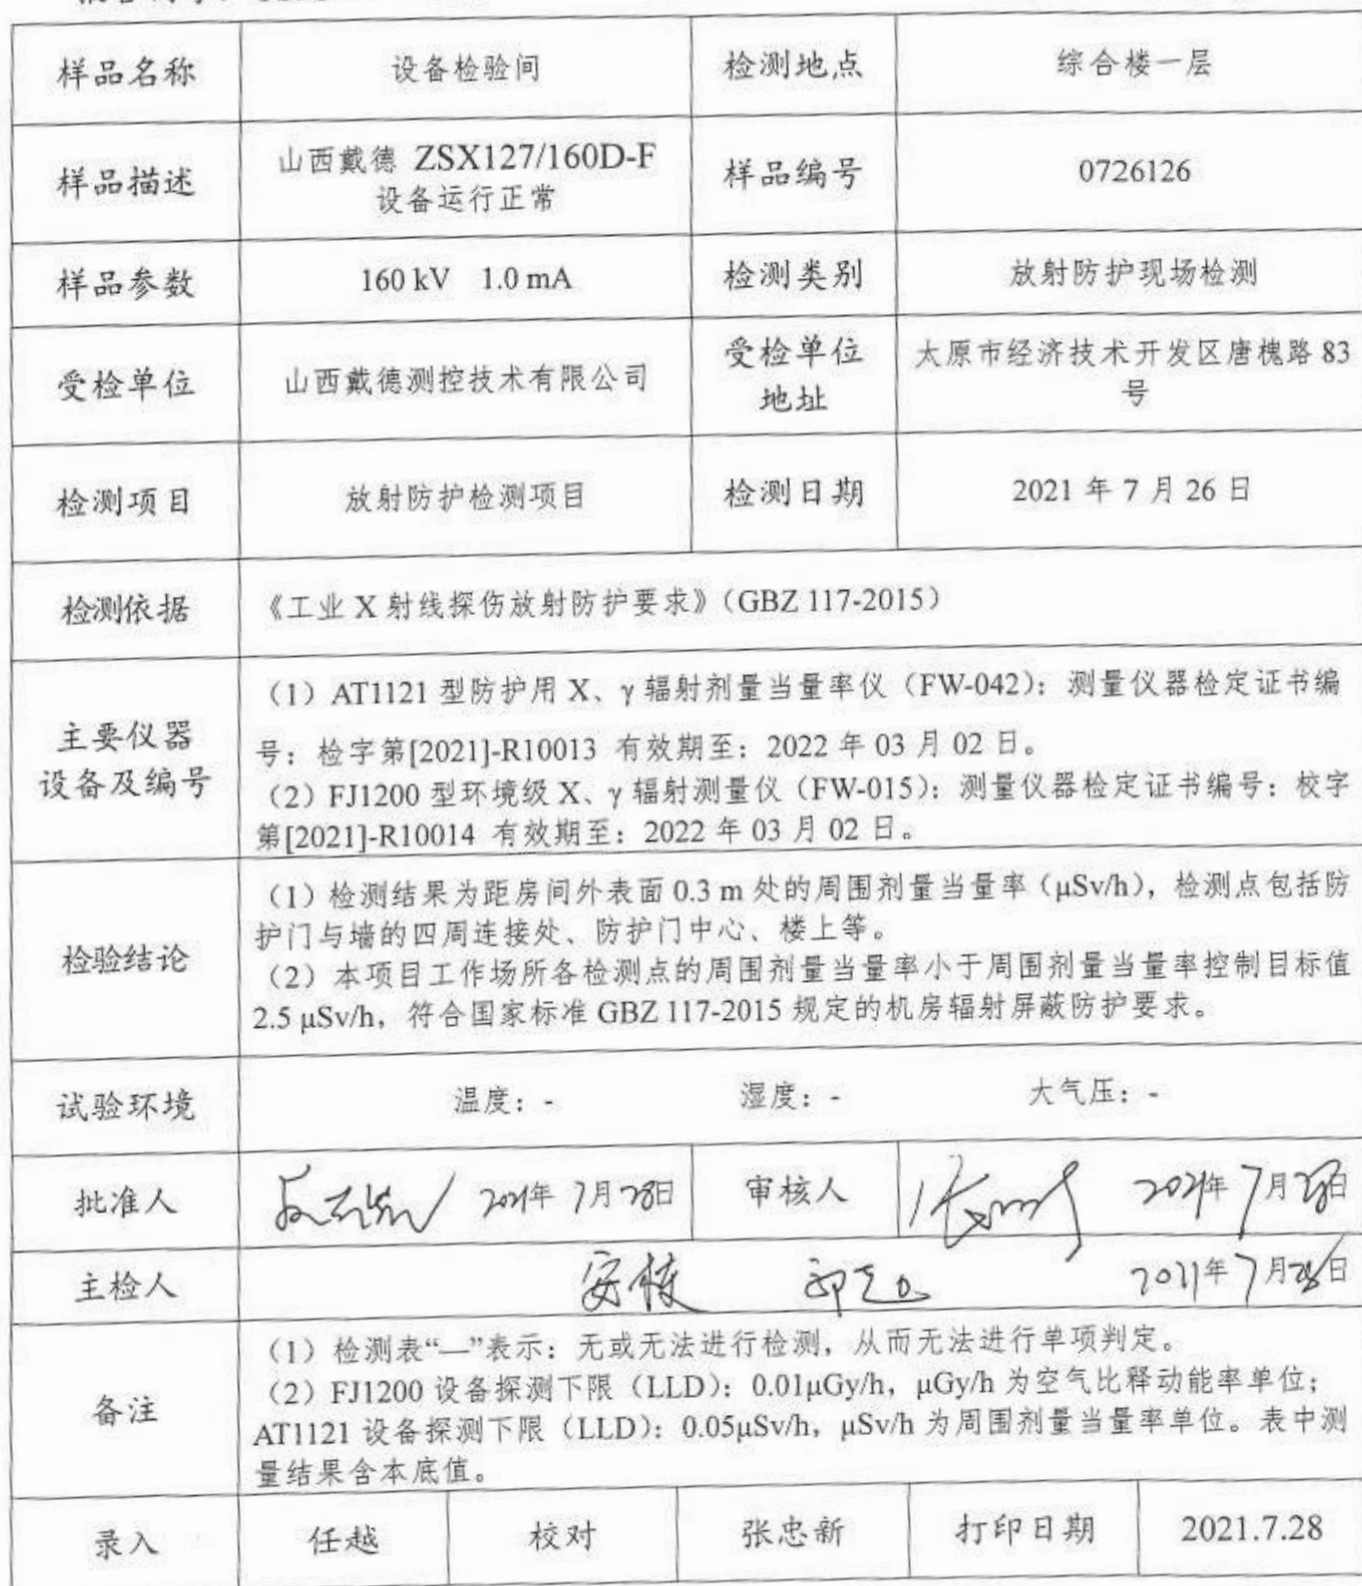 样品名称 设备检验间 检测地点 综合楼一层
样品描述 山西戴德 ZSX127/160D-F
设备运行正常 样品编号 0726126
样品参数 160 kV 1.0 mA 检测类别 放射防护现场检测
受检单位 山西戴德测控技术有限公司 受检单位
地址 太原市经济技术开发区唐槐路 83
号
检测项目 放射防护检测项目 检测日期 2021 年 7 月 26 日
检测依据 《工业 X 射线探伤放射防护要求》（GBZ 117-2015）
主要仪器
设备及编号
（1）AT1121 型防护用 X、γ 辐射剂量当量率仪（FW-042）：测量仪器检定证书编
号：检字第[2021]-R10013 有效期至：2022 年 03 月 02 日。
（2）FJ1200 型环境级 X、γ 辐射测量仪（FW-015）：测量仪器检定证书编号：校字
第[2021]-R10014 有效期至：2022 年 03 月 02 日。
检验结论
（1）检测结果为距房间外表面 0.3 m 处的周围剂量当量率（μSv/h），检测点包括防
护门与墙的四周连接处、防护门中心、楼上等。
（2）本项目工作场所各检测点的周围剂量当量率小于周围剂量当量率控制目标值
2.5 μSv/h，符合国家标准 GBZ 117-2015 规定的机房辐射屏蔽防护要求。
试验环境 温度：- 湿度：- 大气压：-
批准人 2021年 7月28日 审核人 2021年 7月28日
主检人 2021年 7月 日
备注
（1）检测表“—”表示：无或无法进行检测，从而无法进行单项判定。
（2）FJ1200 设备探测下限（LLD）：0.01μGy/h，μGy/h 为空气比释动能率单位；
AT1121 设备探测下限（LLD）：0.05μSv/h，μSv/h 为周围剂量当量率单位。表中测
量结果含本底值。
录入 任越 校对 张忠新 打印日期 2021.7.28